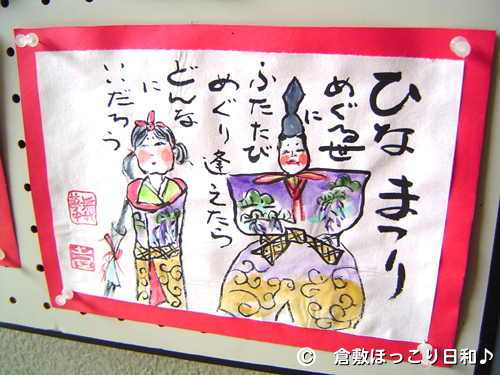 ひなまつり
めぐる世
に
ふたたび
めぐり逢えたら
どんな
に
いいだろう
© 倉敷ほっこり日和♪